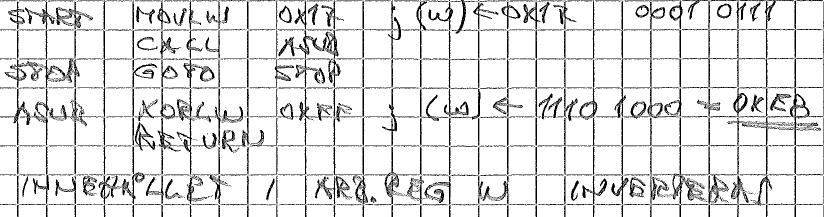 START MOVLW 0X17 ; (W) ← 0X17 0001 0111
CALL ASUB
STOP GOTO STOP
ASUB XORLW 0XFF ; (W) ← 1110 1000 = 0XE8
RETURN
INNEHÅLLET I ARB.REG W INVERTERAS